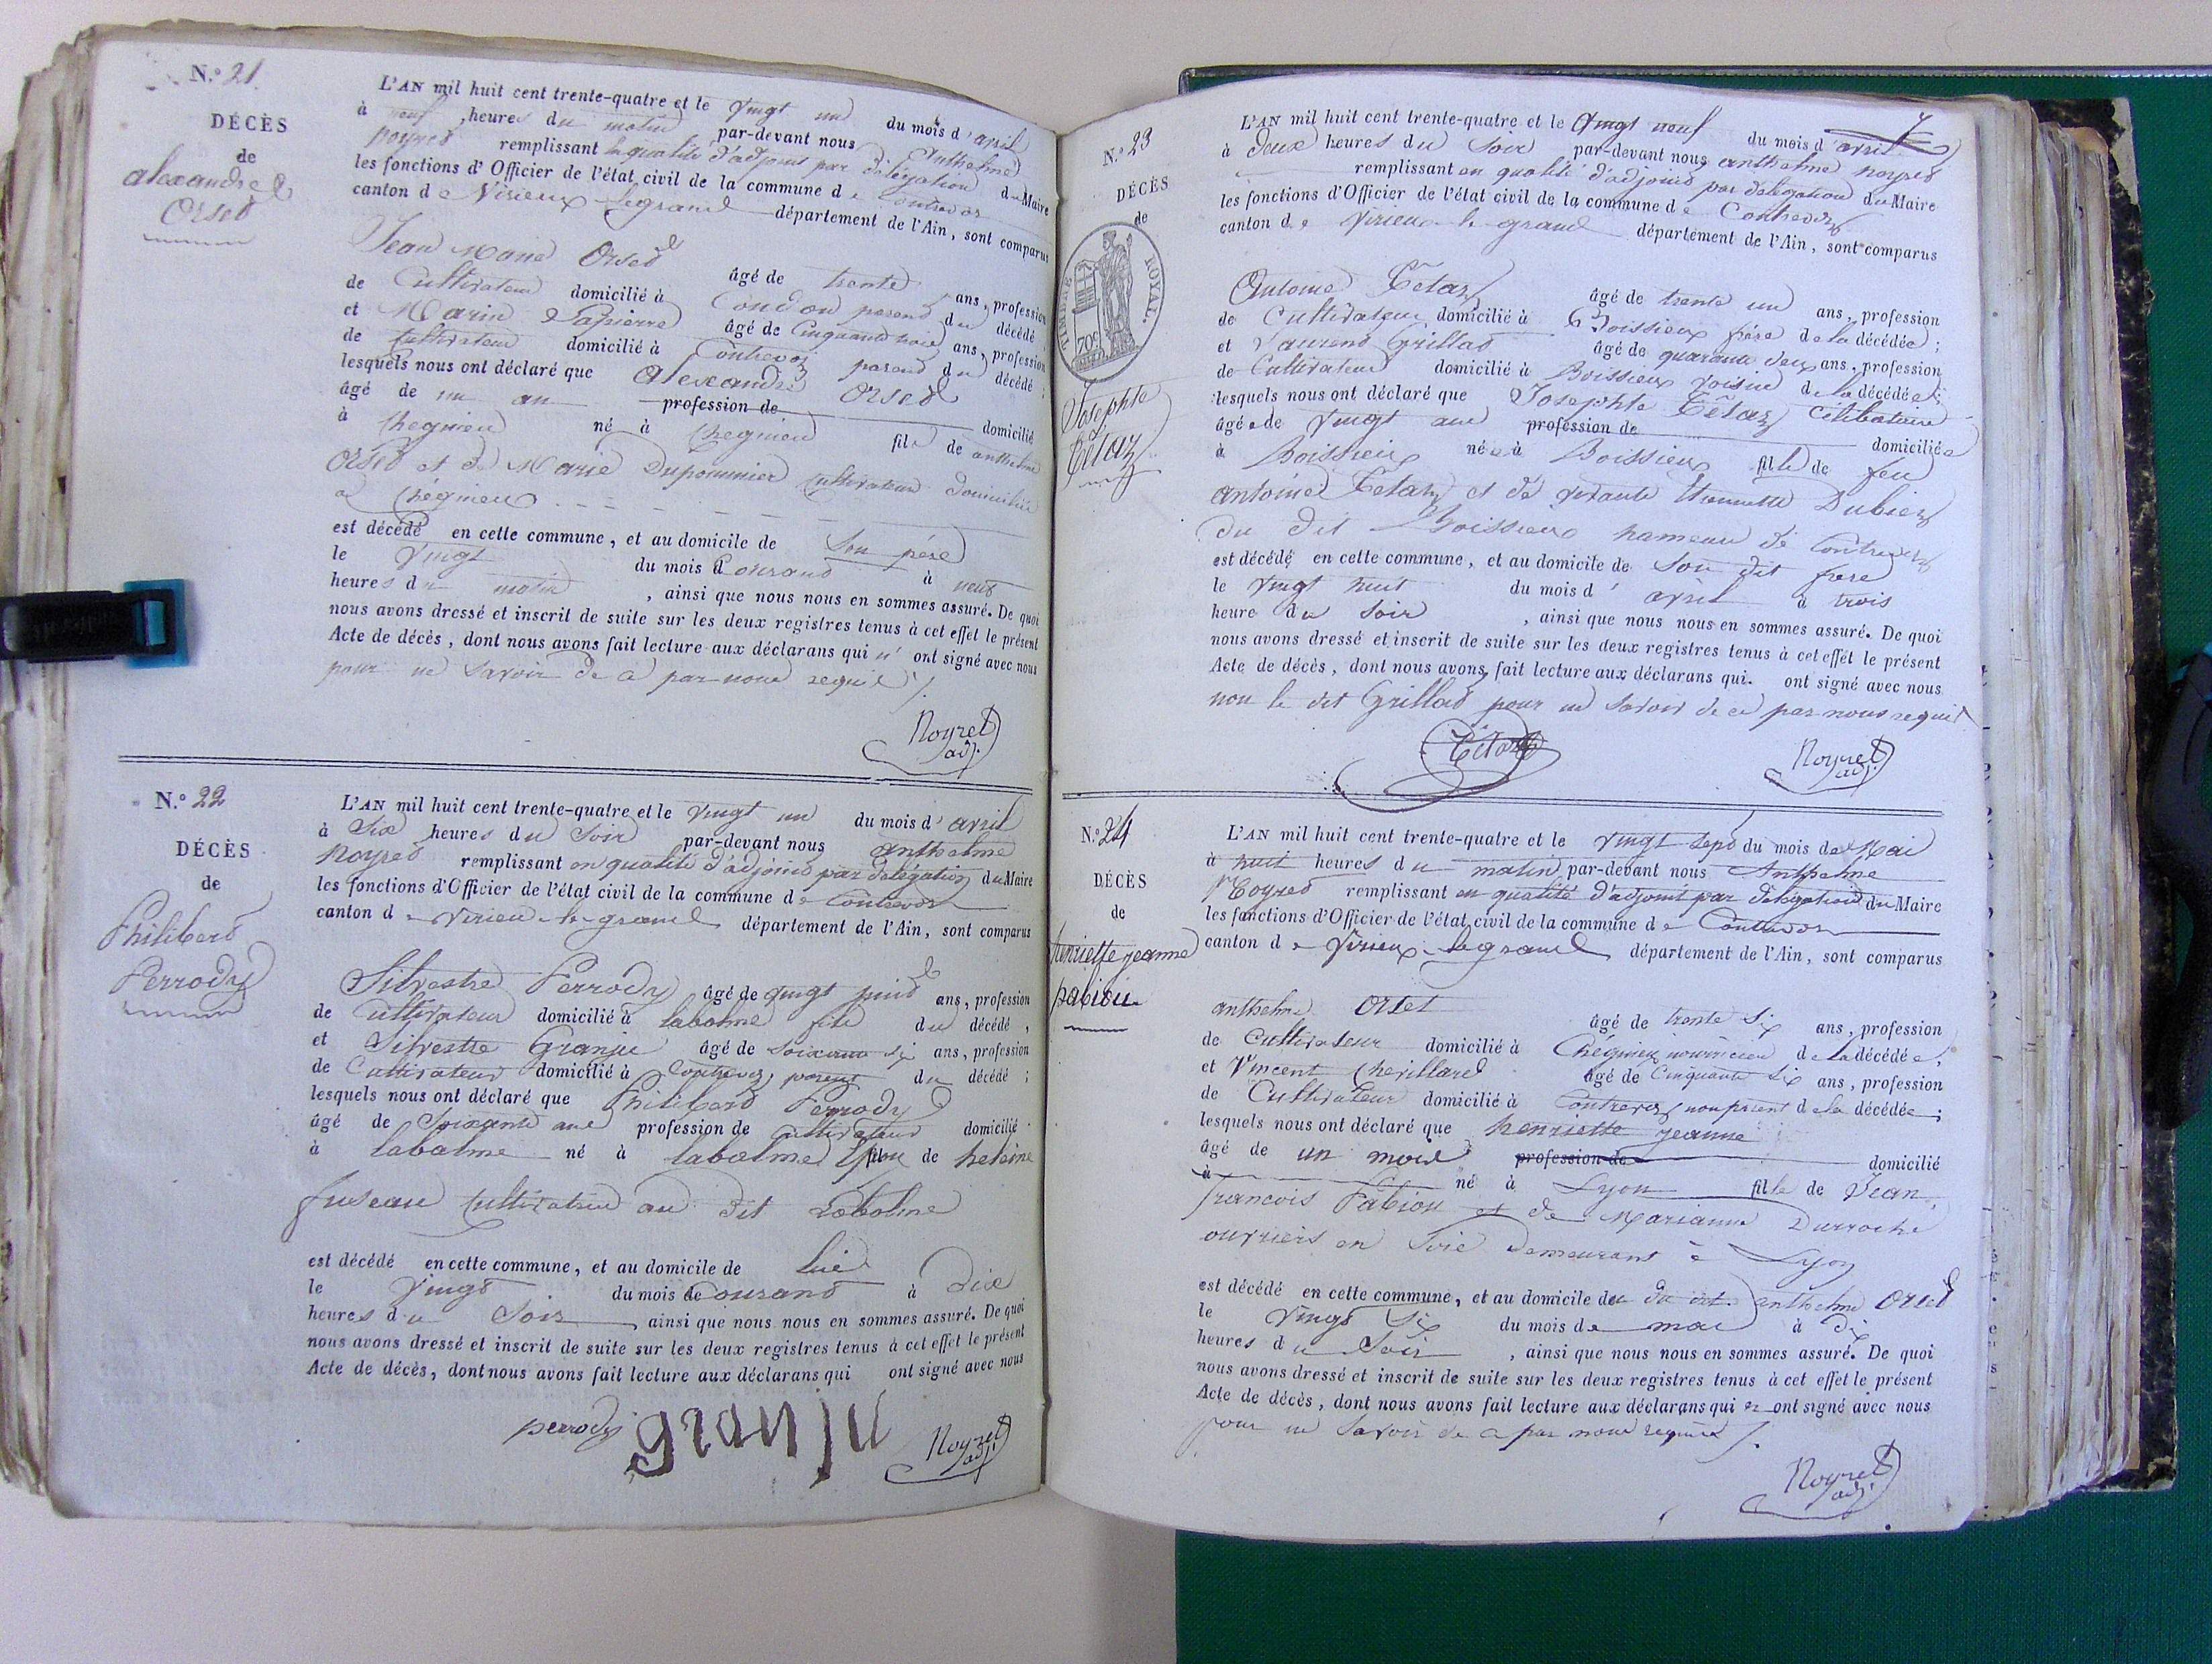 N.° 21
DÉCÈS
de
alexandre
Orset
L'AN mil huit cent trente-quatre et le Vingt un du mois d'avril
à neuf heures du matin par-devant nous Anthelme
Noyret remplissant en qualité d'adjoint par délégation du Maire
les fonctions d'Officier de l'état civil de la commune de Contrevoz
canton de Virieux legrand département de l'Ain, sont comparus
Jean Marie Orset âgé de trente ans, profession
de Cultivateur domicilié à Condon parent du décédé
et Marin Lapierre âgé de Cinquante trois ans, profession
de Cultivateur domicilié à Contrevoz parent du décédé ;
lesquels nous ont déclaré que Alexandre Orset
âgé de un an profession de domicilié
à Chegnieu né à Chegnieu fils de anthelme
Orset et de Marie Dupommier Cultivateur domicilié
a Chégnieu
est décédé en cette commune, et au domicile de Son père
le Vingt du mois Courant à neuf
heures du matin , ainsi que nous nous en sommes assuré. De quoi
nous avons dressé et inscrit de suite sur les deux registres tenus à cet effet le présent
Acte de décès, dont nous avons fait lecture aux déclarans qui n' ont signé avec nous
pour ne Savoir de ce par nous requis
Noyret
adj.
N.° 22
DÉCÈS
de
Philibert
Perrody
L'AN mil huit cent trente-quatre et le Vingt un du mois d'avril
à Six heures du Soir par-devant nous Anthelme
Noyret remplissant en qualité d'adjoint par délégation du Maire
les fonctions d'Officier de l'état civil de la commune de Contrevoz
canton de Virieu le grand département de l'Ain, sont comparus
Silvestre Perrody âgé de Vingt huit ans, profession
de Cultivateur domicilié à labalme fils du décédé,
et Silvestre Granju âgé de Soixante Six ans, profession
de Cultivateur domicilié à Contrevoz parent du décédé ;
lesquels nous ont déclaré que Philibert Perrody
âgé de Soixante ans profession de Cultivateur domicilié
à labalme né à labalme Epou de heleine
fuseau Cultivateur au dit Labalme
est décédé en cette commune, et au domicile de lui
le Vingt du mois de Courant à Dix
heures du Soir ainsi que nous nous en sommes assuré. De quoi
nous avons dressé et inscrit de suite sur les deux registres tenus à cet effet le présent
Acte de décès, dont nous avons fait lecture aux déclarans qui ont signé avec nous
perrody
Noyret
adj.
N.° 23
DÉCÈS
de
TIMBRE ROYAL.
70c
Josephte
Tétaz
L'AN mil huit cent trente-quatre et le Vingt neuf du mois d'avril
à Deux heures du Soir par-devant nous anthelme noyret
remplissant en qualité d'adjoint par délégation du Maire
les fonctions d'Officier de l'état civil de la commune de Contrevoz
canton de Virieu le grand département de l'Ain, sont comparus
Antoine Tétaz âgé de trente un ans, profession
de Cultivateur domicilié à Boissieux frére de la décédée ;
et Laurent Grillat âgé de quarante deux ans, profession
de Cultivateur domicilié à Boissieux voisin de la décédée ;
lesquels nous ont déclaré que Josephte Tétaz Célibataire
âgée de Vingt ans profession de domiciliée
à Boissieux née à Boissieux fille de feu
antoine Tétaz et de vivante Etiennette Dubiez
du dit Boissieux hameau de Contrevoz
est décédé en cette commune, et au domicile de Son dit frere
le Vingt huit du mois d' avril à trois
heure du Soir , ainsi que nous nous en sommes assuré. De quoi
nous avons dressé et inscrit de suite sur les deux registres tenus à cet effet le présent
Acte de décès, dont nous avons fait lecture aux déclarans qui. ont signé avec nous
non le dit Grillat pour ne Savoir de ce par nous requis
Tétaz
Noyret
adj.
N.° 24
DÉCÈS
de
henriette jeanne
pabiou
L'AN mil huit cent trente-quatre et le Vingt Sept du mois de Mai
à huit heures du matin par-devant nous Anthelme
Noyret remplissant en qualité d'adjoint par délégation du Maire
les fonctions d'Officier de l'état civil de la commune de Contrevoz
canton de Virieux legrand département de l'Ain, sont comparus
anthelme Orset âgé de trente Six ans, profession
de Cultivateur domicilié à Chégnieu nourricier de la décédée,
et Vincent Chevillard âgé de Cinquante Six ans, profession
de Cultivateur domicilié à Contrevoz non parent de la décédée ;
lesquels nous ont déclaré que henriette jeanne
âgé de un mois profession de domicilié
à né à Lyon fille de Jean
francois Pabiou et de Marianne Durroche
ouvriers en Soie Demeurant à Lyon
est décédé en cette commune, et au domicile de du dit anthelme Orset
le Vingt Six du mois de mai à Dix
heures du Soir , ainsi que nous nous en sommes assuré. De quoi
nous avons dressé et inscrit de suite sur les deux registres tenus à cet effet le présent
Acte de décès, dont nous avons fait lecture aux déclarans qui n ont signé avec nous
pour ne Savoir de ce par nous requis
Noyret
adj.